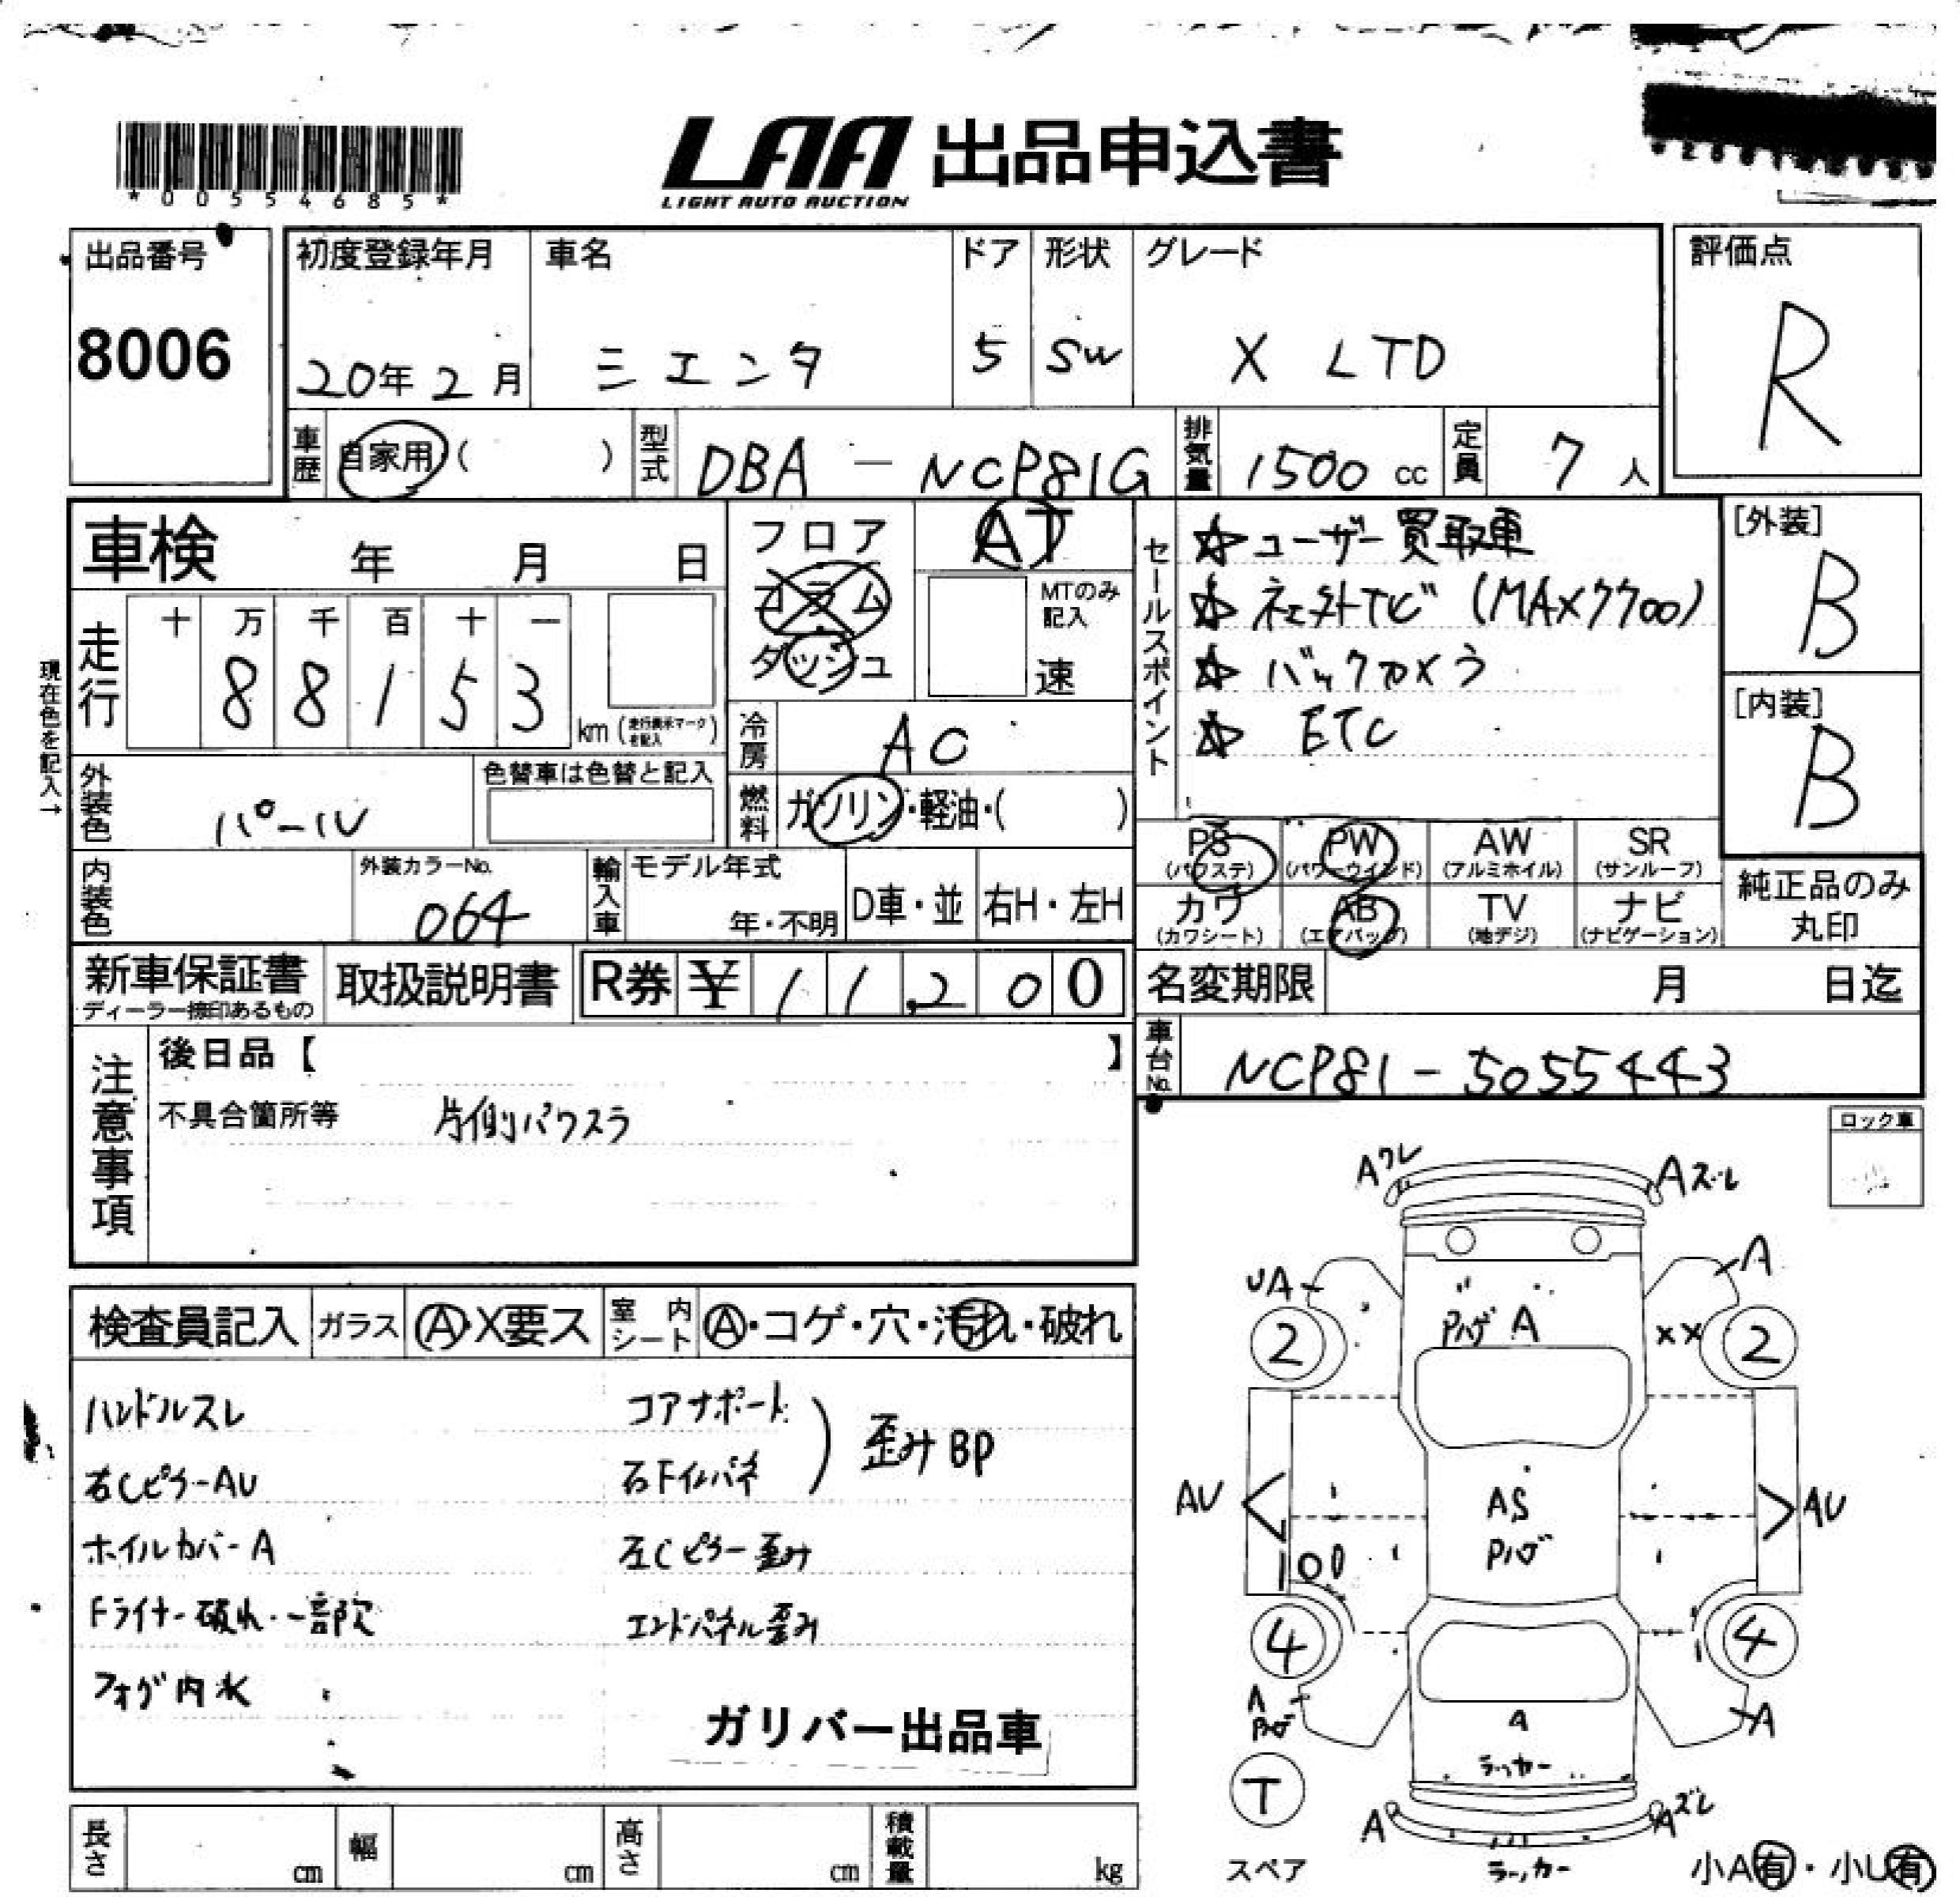 *00554685*
LAA 出品申込書
LIGHT AUTO AUCTION
出品番号
8006
初度登録年月
20年2月
車名
シエンタ
ドア
5
形状
SW
グレード
X LTD
評価点
R
車歴
自家用( )
型式
DBA-NCP81G
排気量
1500 cc
定員
7人
車検 年 月 日
フロア
コラム
ダッシュ
AT
MTのみ記入
速
セールスポイント
☆ユーザー買取車
☆社外TV (MAX7700)
☆バックカメラ
☆ETC
[外装]
B
[内装]
B
現在色を記入→
走行
十 万 千 百 十 一
88153
km(走行表示マークを記入)
冷房
AC
外装色
パール
色替車は色替と記入
燃料
ガソリン・軽油・( )
内装色
外装カラーNo.
064
輸入車
モデル年式
年・不明
D車・並
右H・左H
PS
(パワステ)
PW
(パワーウインド)
AW
(アルミホイル)
SR
(サンルーフ)
カワ
(カワシート)
AB
(エアバック)
TV
(地デジ)
ナビ
(ナビゲーション)
純正品のみ
丸印
新車保証書
ディーラー捺印あるもの
取扱説明書
R券 ¥ 11,200
名変期限 月 日迄
車台No.
NCP81-5055443
注意事項
後日品【 】
不具合箇所等 片側パワスラ
ロック車
検査員記入
ガラス
A・X要ス
室内シート
A・コゲ・穴・汚れ・破れ
ハンドルスレ
右Cピラ-AU
ホイルカバーA
Fライナー破れ・一部欠
フォグ内水
コアサポート
右Fインパネ
歪みBP
左Cピラー歪み
エンドパネル歪み
ガリバー出品車
Aワレ
Aズレ
UA
A
2
PハゲA
XX
2
AU
AS
Pハゲ
AU
100
4
4
A
Pハゲ
A
A
ラッカー
T
スペア
A
Aズレ
ラッカー
小A有・小U有
長さ cm
幅 cm
高さ cm
積載量 kg